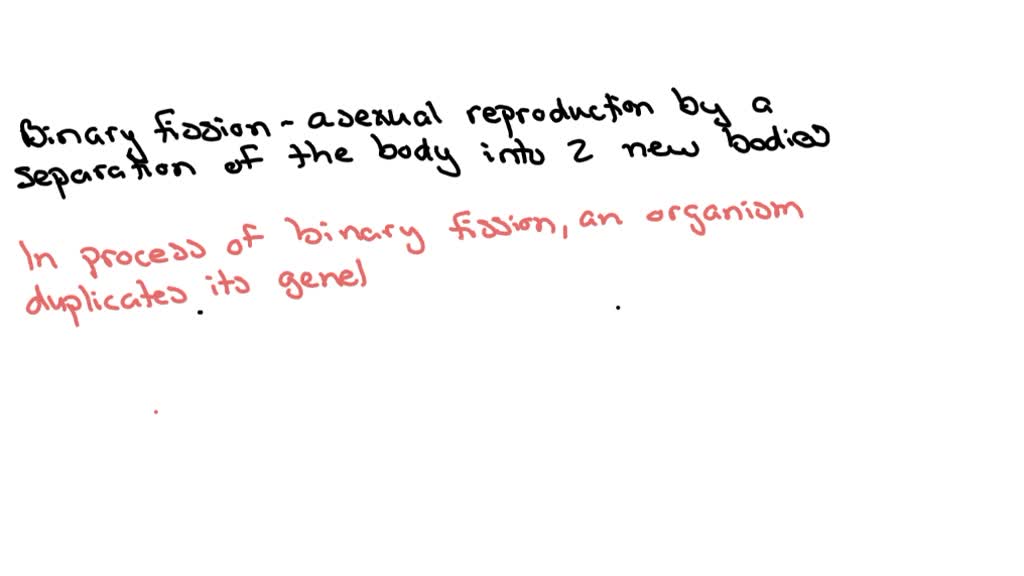 Binary fission - asexual reproduction by a
separation of the body into 2 new bodies
In process of binary fission, an organism
duplicates its genel